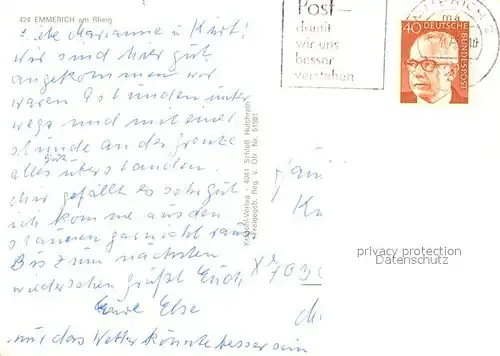 424 EMMERICH am Rhein
Liebe Marianne u Kurt!
Wir sind hier gut
angekommen wir
waren 9 stunden unter
wegs und mit einer
stunde an der Grenze
gut
alles überstanden.
Mir gefällt es sehr gut
ich komme aus den
staunen garnicht raus
Bis zum nächsten
wiedersehen grüßt Euch
Eure Else
nur das Wetter könnte besser sein
Krapohl-Verlag - 4041 Schloß Hülchrath
Freigegeb. Reg. v. Obb. Nr. 51981
Post-
damit
wir uns
besser
verstehen
EMMERICH 2
ma
40 DEUTSCHE
BUNDESPOST
Fami
Ku
X 7030
privacy protection
Datenschutz